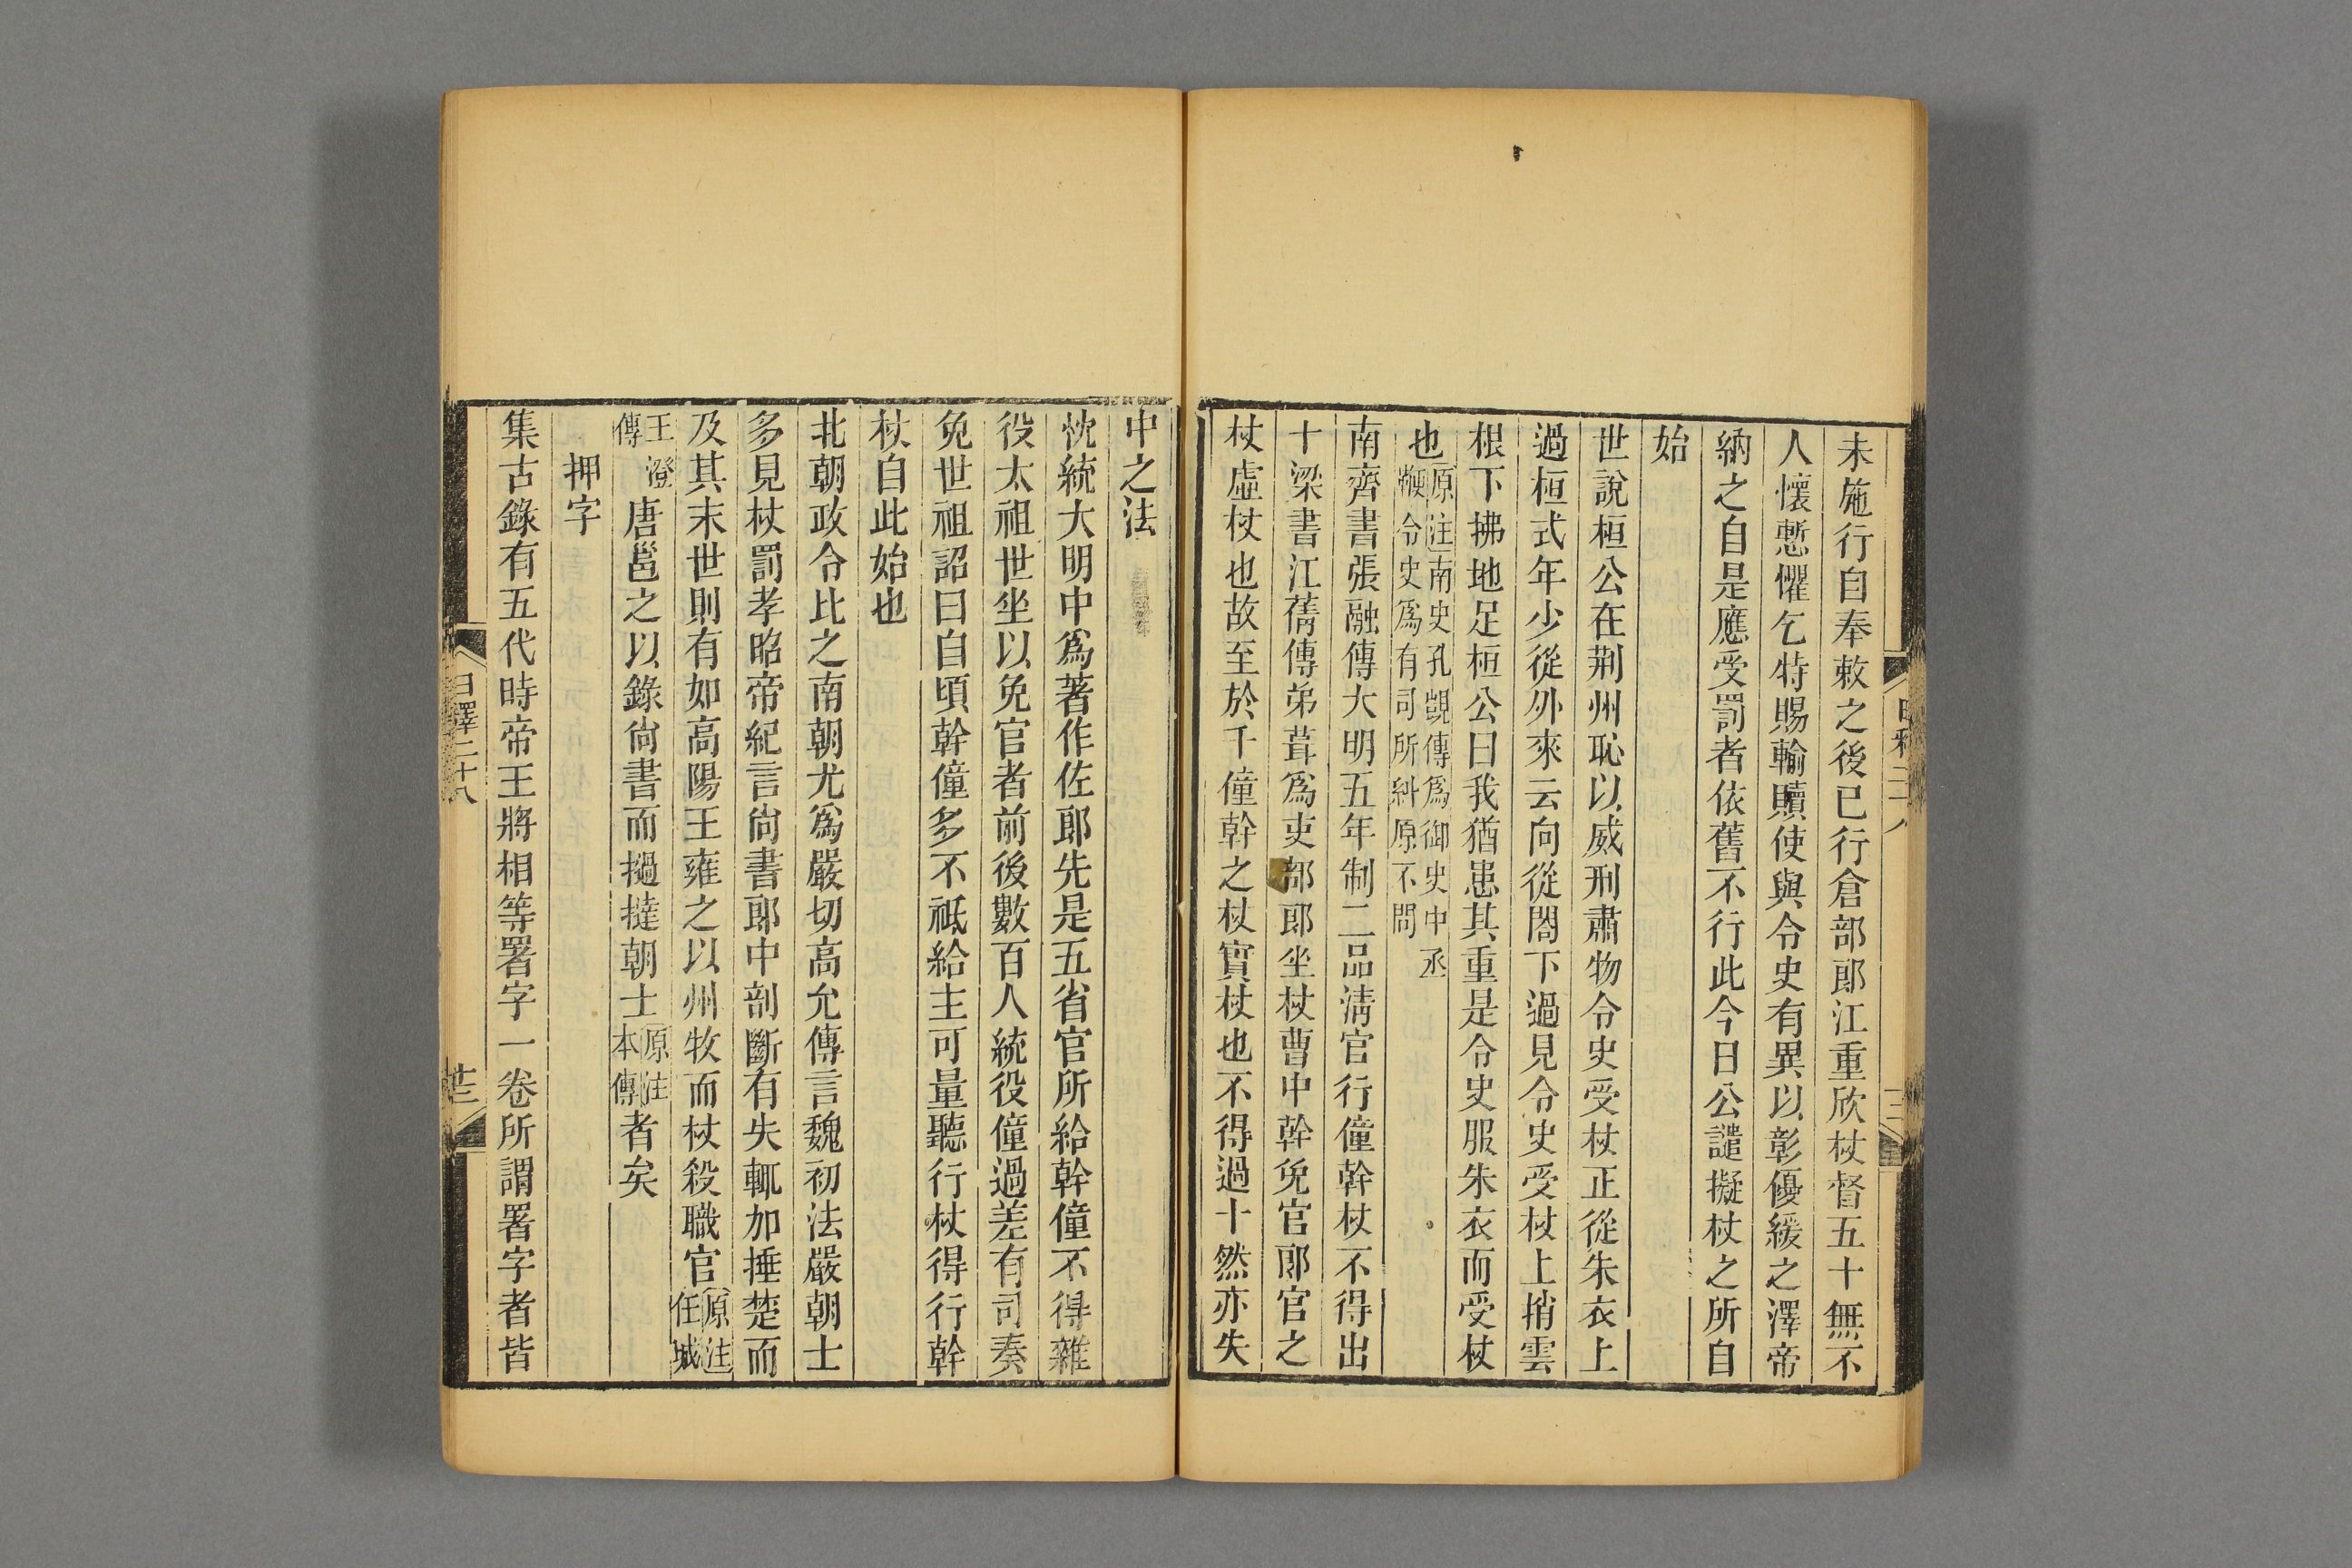 未施行自奉敕之後已行倉部郎江重欣杖督五十無不
人懷慙懼乞特賜輸贖使與令史有異以彰優緩之澤帝
納之自是應受罰者依舊不行此今日公譴擬杖之所自
始
世說桓公在荆州恥以威刑肅物令史受杖正從朱衣上
過桓式年少從外來云向從閤下過見令史受杖上捎雲
根下拂地足桓公曰我猶患其重是令史服朱衣而受杖
也原注南史孔覬傳為御史中丞鞭令史為有司所糾原不問
南齊書張融傳大明五年制二品淸官行僮幹杖不得出
十梁書江蒨傳弟葺為吏部郎坐杖曹中幹免官郎官之
杖虛杖也故至於千僮幹之杖實杖也不得過十然亦失
中之法
忱統大明中為著作佐郎先是五省官所給幹僮不得雜
役太祖世坐以免官者前後數百人統役僮過差有司奏
免世祖詔曰自頃幹僮多不祗給主可量聽行杖得行幹
杖自此始也
北朝政令比之南朝尤為嚴切高允傳言魏初法嚴朝士
多見杖罰孝昭帝紀言尙書郎中剖斷有失輒加捶楚而
及其末世則有如高陽王雍之以州牧而杖殺職官原注任城
王澄傳唐邕之以錄尙書而撾撻朝士原注本傳者矣
押字
集古錄有五代時帝王將相等署字一卷所謂署字者皆
日釋二十八
廿三